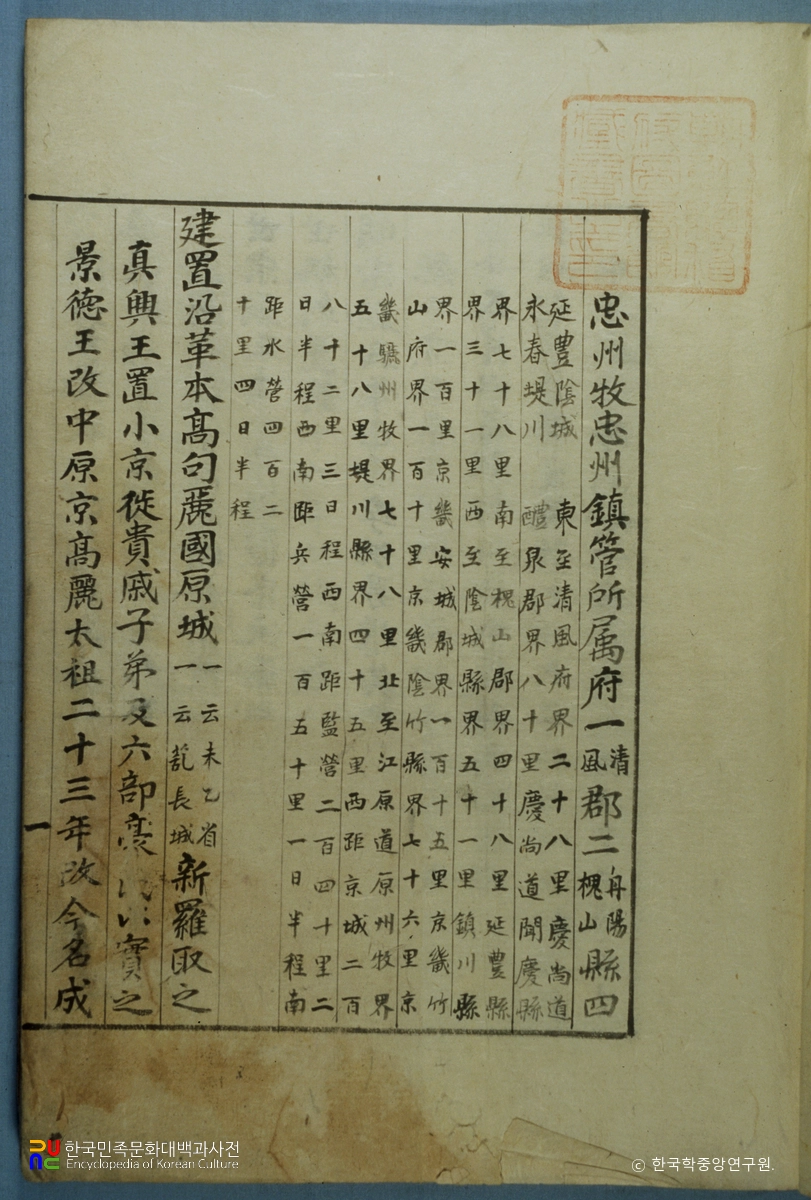 忠州牧忠州鎮管所属府一清風郡二丹陽槐山縣四
延豐陰城
永春堤川
東至清風府界二十八里慶尚道
醴泉郡界八十里慶尚道聞慶縣
界七十八里南至槐山郡界四十八里延豐縣
界三十一里西至陰城縣界五十一里鎮川縣
界一百里京畿安城郡界一百十五里京畿竹
山府界一百十里京畿陰竹縣界七十六里京
畿驪州牧界七十八里北至江原道原州牧界
五十八里堤川縣界四十五里西距京城二百
八十二里三日程西南距監營二百四十里二
日半程西南距兵營一百五十里一日半程南
距水營四百二
十里四日半程
建置沿革本高句麗國原城一云未乙省一云薍長城新羅取之
真興王置小京徙貴戚子弟及六部豪民以實之
景德王改中原京高麗太祖二十三年改今名成
一
한국민족문화대백과사전
Encyclopedia of Korean Culture
© 한국학중앙연구원.